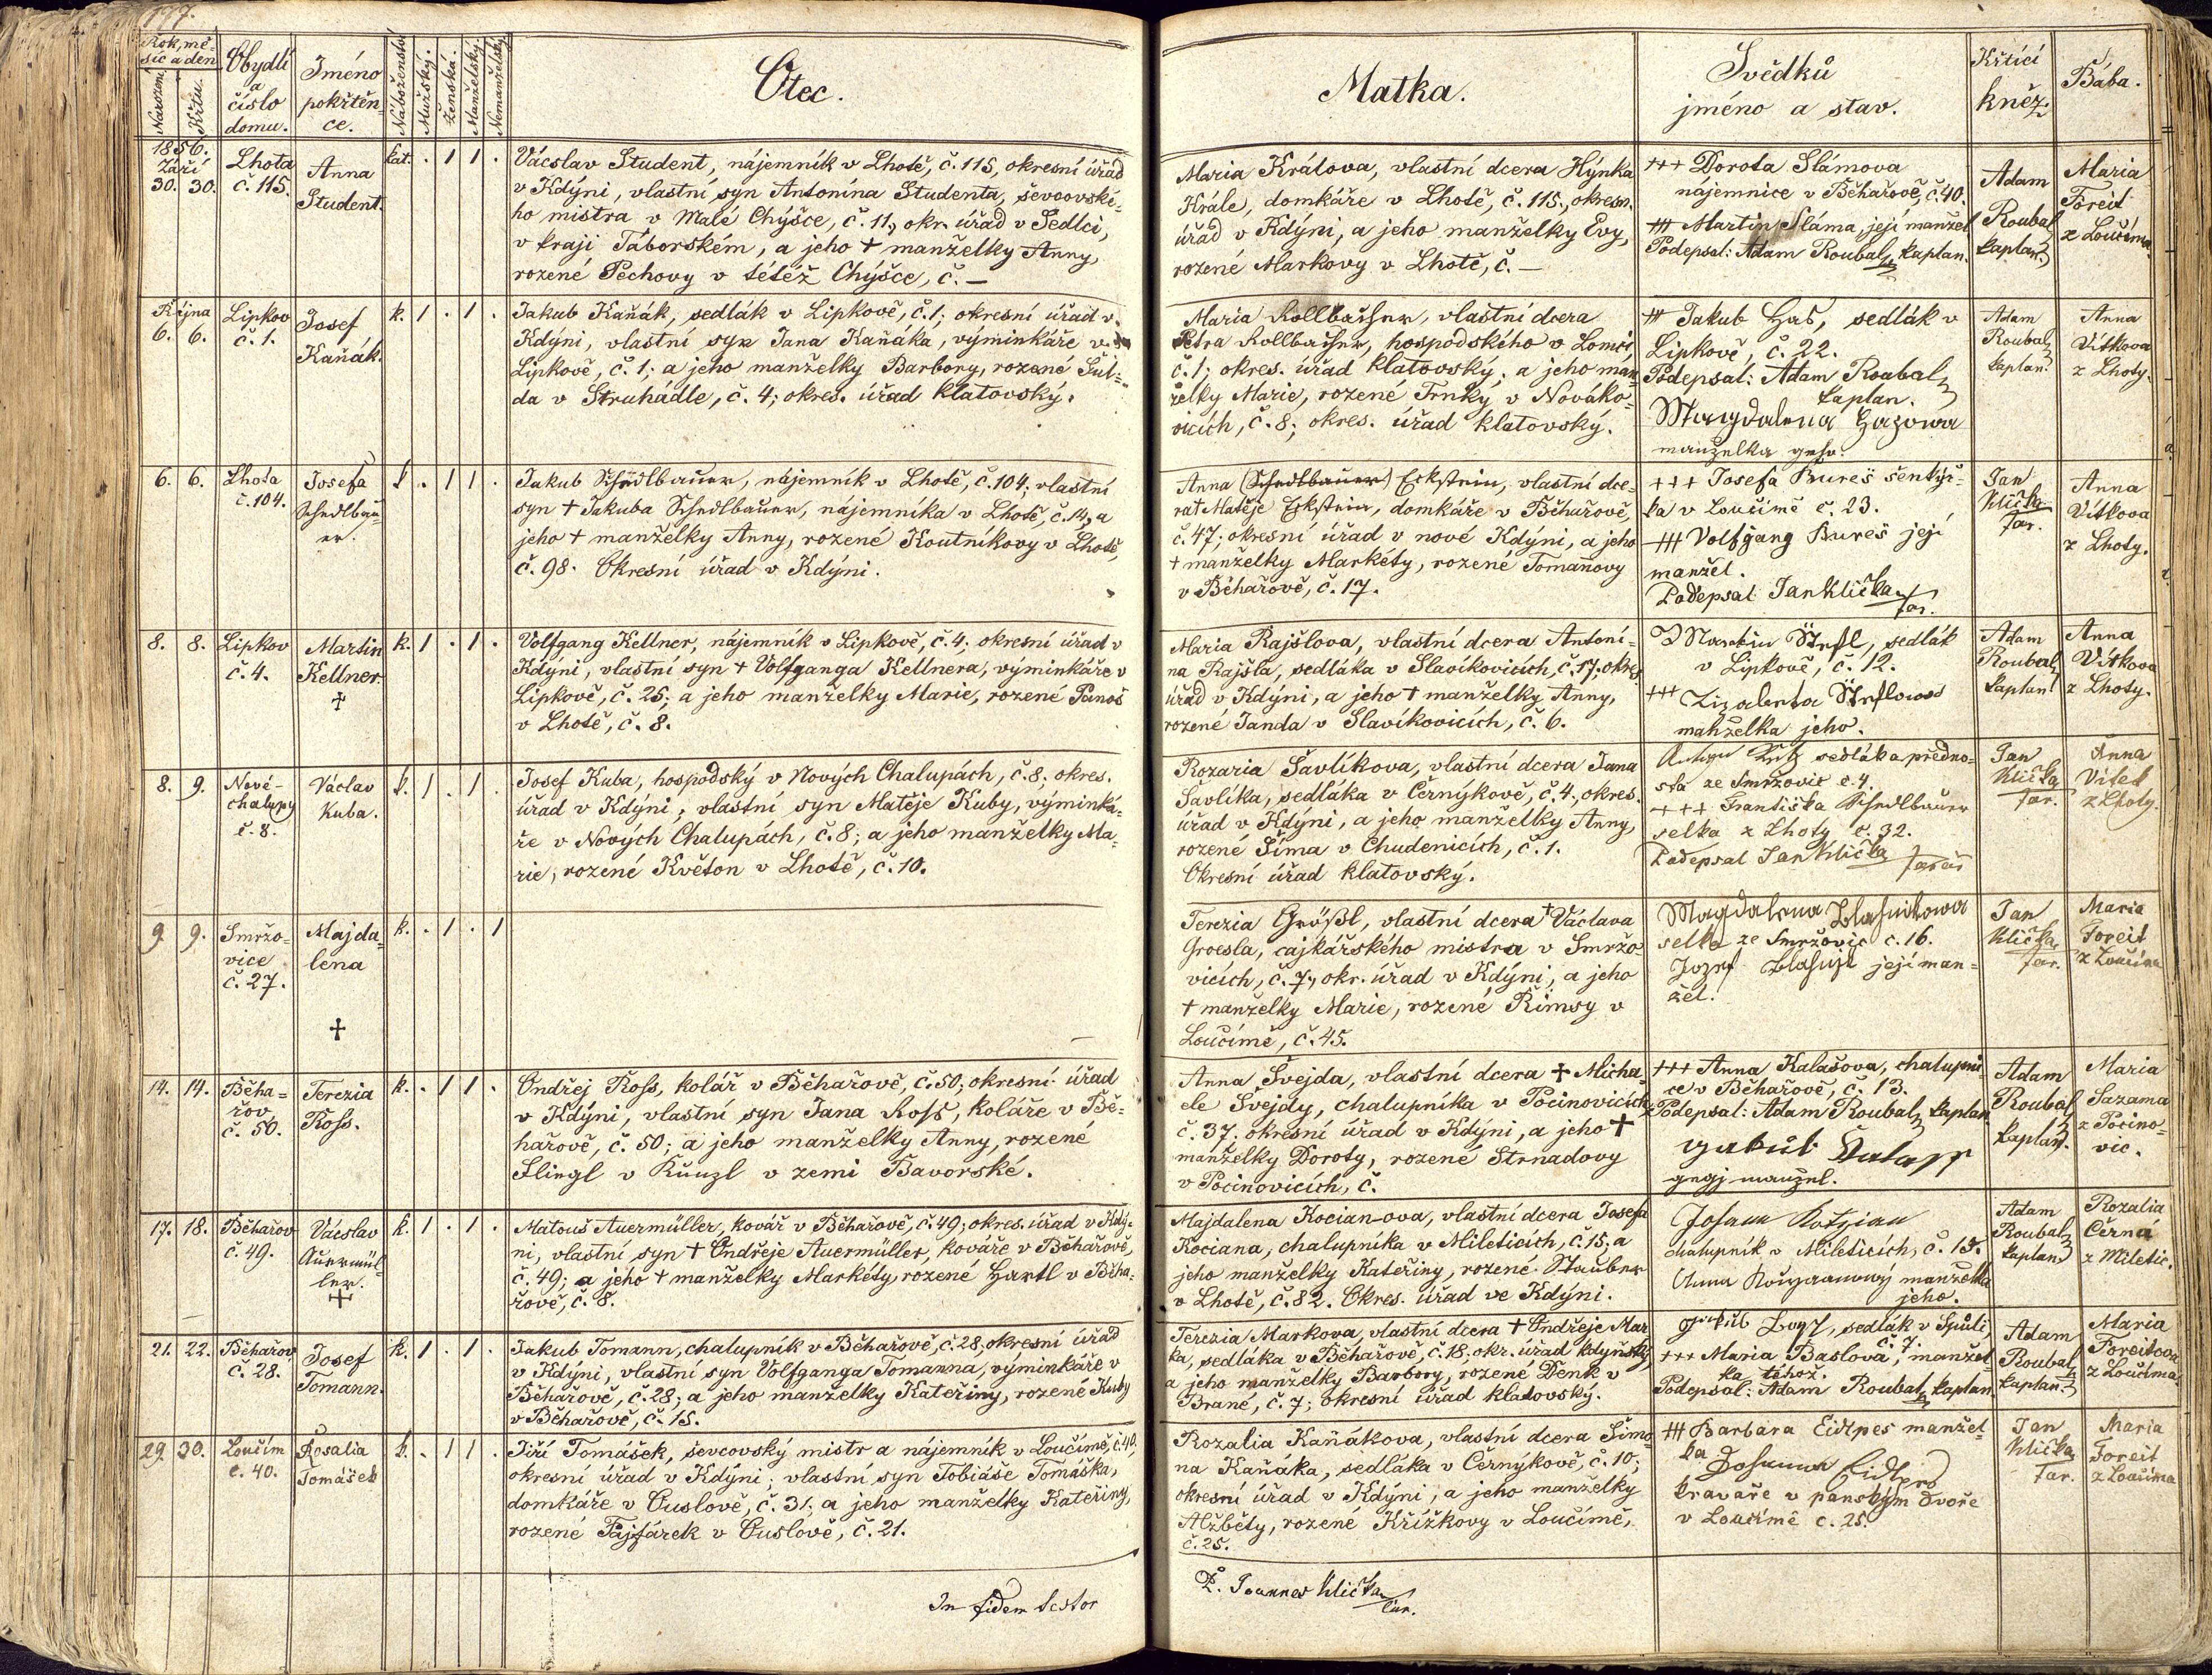 177.
Rok, mě-
síc a den
Narození.
Křtu.
Obydlí
a
číslo
domu.
Jméno
pokřtěn-
ce.
Náboženství
Mužský.
Ženská.
Manželský.
Nemanželský.
Otec.
Matka.
Svědků
jméno a stav.
Křticí
kněz.
Bába.
1856.
Září
30. 30.
Lhota
č. 115.
Anna
Student.
kat. . 1 1 .
Vácslav Student, nájemník v Lhotě, č. 115, okresní úřad
v Kdýni, vlastní syn Antonína Studenta, ševcovské-
ho mistra v Malé Chýšce, č. 11, okr. úřad v Sedlci,
v kraji Táborském, a jeho + manželky Anny,
rozené Pechovy v tétéž Chýšce, č. —
Maria Králova, vlastní dcera Hýnka
Krále, domkáře v Lhotě, č. 115., okresn.
úřad v Kdýni, a jeho manželky Evy,
rozené Markovy v Lhotě, č. —
+++ Dorota Slámova
nájemnice v Běhařově, č. 40.
+++ Martin Sláma, její manžel
Podepsal: Adam Roubal, kaplan.
Adam
Roubal,
kaplan.
Maria
Foreit
z Loučíma.
Října
6. 6.
Lipkov
č. 1.
Josef
Kaňák.
k. 1 . 1 .
Jakub Kaňák, sedlák v Lipkově, č. 1; okresní úřad v
Kdýni, vlastní syn Jana Kaňáka, výminkáře v
Lipkově, č. 1; a jeho manželky Barbory, rozené Šul-
da v Struhádle, č. 4; okres. úřad klatovský.
Maria Kollbaifner, vlastní dcera
Petra Kollbaifner, hospodského v Lomci
č. 1; okres. úřad klatovský; a jeho man-
želky Marie, rozené Trnky v Nováko-
vicích, č. 8; okres. úřad klatovský.
+++ Jakub Has, sedlák v
Lipkově, č. 22.
Podepsal: Adam Roubal,
kaplan.
Magdalena Hasowa
manželka geho.
Adam
Roubal,
kaplan.
Anna
Vítkova
z Lhoty.
6. 6.
Lhota
č. 104.
Josefa
Schedlbau-
er.
k . 1 1 .
Jakub Schedlbauer, nájemník v Lhotě, č. 104; vlastní
syn + Jakuba Schedlbauer, nájemníka v Lhotě, č. 14, a
jeho + manželky Anny, rozené Koutníkovy v Lhotě,
č. 98. Okresní úřad v Kdýni.
Anna (Schedlbauer) Eckstein, vlastní dce-
ra + Matěje Eckstein, domkáře v Běhařově,
č. 47; okresní úřad v nové Kdýni, a jeho
+ manželky Markéty, rozené Tomanovy
v Běhařově, č. 17.
+++ Josefa Bureš šenkýř-
ka v Loučimě č. 23.
+++ Volfgang Bureš její
manžel.
Podepsal Jan Klička
far.
Jan
Klička
far.
Anna
Vítkova
z Lhoty.
8. 8.
Lipkov
č. 4.
Martin
Kellner
+
k. 1 . 1 .
Volfgang Kellner, nájemník v Lipkově, č. 4; okresní úřad v
Kdýni, vlastní syn + Volfganga Kellnera, výminkáře v
Lipkově, č. 25; a jeho manželky Marie, rozené Panoš
v Lhotě, č. 8.
Maria Rajšlova, vlastní dcera Antoní-
na Rajšla, sedláka v Slavíkovicích, č. 17; okres.
úřad v Kdýni, a jeho + manželky Anny,
rozené Janda v Slavíkovicích, č. 6.
Martin, sedlák
v Lipkově, č. 12.
+++
manželka jeho.
Adam
Roubal,
kaplan
Anna
Vítkova
z Lhoty.
8. 9.
Nové-
chalupy
č. 8.
Václav
Kuba.
k. 1 . 1 .
Josef Kuba, hospodský v Nových Chalupách, č. 8; okres.
úřad v Kdýni; vlastní syn Matěje Kuby, výminká-
ře v Nových Chalupách, č. 8; a jeho manželky Ma-
rie, rozené Květon v Lhotě, č. 10.
Rozaria Šavlíkova, vlastní dcera Jana
Šavlíka, sedláka v Černýkově, č. 4., okres.
úřad v Kdýni, a jeho manželky Anny,
rozené Šíma v Chudenicích, č. 1.
Okresní úřad klatovský.
sedláka předno-
sta ze Smržovic č. 4.
+++ Františka Schedlbauer
selka z Lhoty č. 32.
Podepsal Jan Klička farář
Jan
Klička
far.
Anna
Vítek
z Lhoty.
9. 9.
Smržo-
vice
č. 27.
Majda-
lena
+
k. . 1 . 1
Terezia Größl, vlastní dcera + Václava
Groesla, cajkářského mistra v Smržo-
vicích, č. 7, okr. úřad v Kdýni, a jeho
+ manželky Marie, rozené Rimsy v
Loučímě, č. 45.
Magdalena
selka ze Smržovic č. 16.
Jozef její man-
žel.
Jan
Klička
far.
Maria
Foreit
z Loučíma
14. 14.
Běha-
řov
č. 50.
Terezia
Ross.
k. . 1 1 .
Ondřej Ross, kolář v Běhařově, č. 50; okresní úřad
v Kdýni, vlastní syn Jana Ross, koláře v Bě-
hařově, č. 50; a jeho manželky Anny, rozené
Slingl v Künzl v zemi Bavorské.
Anna Švejda, vlastní dcera + Micha-
ele Švejdy, chalupníka v Pocinovicích,
č. 37. okresní úřad v Kdýni, a jeho +
manželky Doroty, rozené Strnadovy
v Pocinovicích, č.
+++ Anna Kalašova, chalupni-
ce v Běhařově, č. 13.
Podepsal: Adam Roubal, kaplan
gegj manžel.
Adam
Roubal,
kaplan.
Maria
Sazama
z Pocino-
vic.
17. 18.
Běhařov
č. 49.
Vácslav
Auermül-
ler.
+
k. 1 . 1 .
Matouš Auermüller, kovář v Běhařově, č. 49; okres. úřad v Kdý-
ni, vlastní syn + Ondřeje Auermüller, kováře v Běhařově,
č. 49; a jeho + manželky Markéty, rozené Hartl v Běha-
řově, č. 8.
Majdalena Kocian-ova, vlastní dcera Josefa
Kociana, chalupníka v Mileticích, č. 15; a
jeho manželky Kateřiny, rozené Stauber
v Lhotě, č. 82. Okres. úřad ve Kdýni.
Johann Kotzian
chalupník v Mileticích, č. 15.
Anna manželka
jeho.
Adam
Roubal,
kaplan
Rozalia
Černá
z Miletic.
21. 22.
Běhařov
č. 28.
Josef
Tomann.
k. 1 . 1 .
Jakub Tomann, chalupník v Běhařově, č. 28, okresní úřad
v Kdýni, vlastní syn Volfganga Tomanna, výminkáře v
Běhařově, č. 28; a jeho manželky Kateřiny, rozené Kuby
v Běhařově, č. 15.
Terezia Markova, vlastní dcera + Ondřeje Mar-
ka, sedláka v Běhařově, č. 18, okr. úřad kdynský,
a jeho manželky Barbory, rozené Denk v
Brané, č. 7; okresní úřad klatovský.
sedlák v Spůli,
č. 7.
+++ Maria Baslova, manžel-
ka téhož.
Podepsal: Adam Roubal, kaplan
Adam
Roubal,
kaplan
Maria
Foreitova
z Loučíma.
29. 30.
Loučim
č. 40.
Rosalia
Tomášek
k. . 1 1 .
Jiří Tomášek, ševcovský mistr a nájemník v Loučímě, č. 40,
okresní úřad v Kdýni; vlastní syn Tobiáše Tomáška,
domkáře v Ouslově, č. 31; a jeho manželky Kateřiny,
rozené Fajfárek v Ouslově, č. 21.
Rozalia Kaňákova, vlastní dcera Šimo-
na Kaňáka, sedláka v Černýkově, č. 10;
okresní úřad v Kdýni, a jeho manželky
Alžběty, rozené Křížkovy v Loučímě,
č. 25.
+++ Barbara Eidlpes manžel-
ka Johanna
kravaře v panským dvoře
v Loučimě č. 25.
Jan
Klička
far.
Maria
Foreit
z Loučima
In fidem testor
P. Joannes Klička
cur.